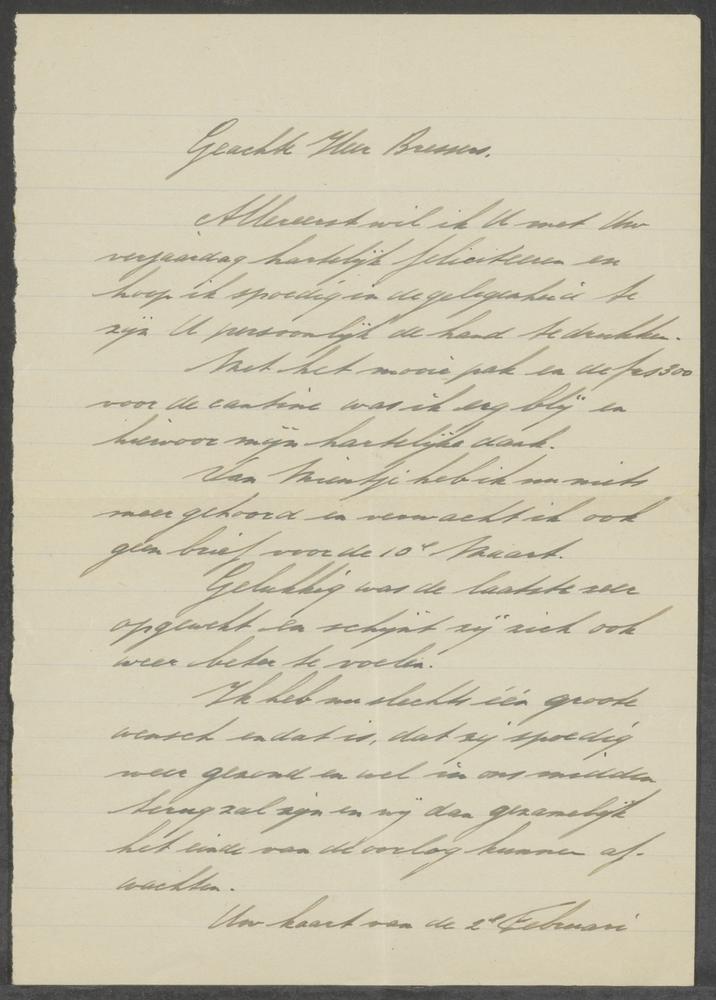 Geachte Heer Bressers.
Allereerst wil ik U met Uw
verjaardag hartelijk feliciteeren en
hoop ik spoedig in de gelegenheid te
zijn U persoonlijk de hand te drukken.
Met het mooie pak en de frs 300
voor de cantine was ik erg blij en
hiervoor mijn hartelijke dank.
Van Mientje heb ik nu niets
meer gehoord en verwacht ik ook
geen brief voor de 10e Maart.
Gelukkig was de laatste zeer
opgewekt en schijnt zij zich ook
weer beter te voelen.
Ik heb nu slechts één groote
wensch en dat is, dat zij spoedig
weer gezond en wel in ons midden
terug zal zijn en wij dan gezamelijk
het einde van de oorlog kunnen af-
wachten.
Uw kaart van de 2e Februari